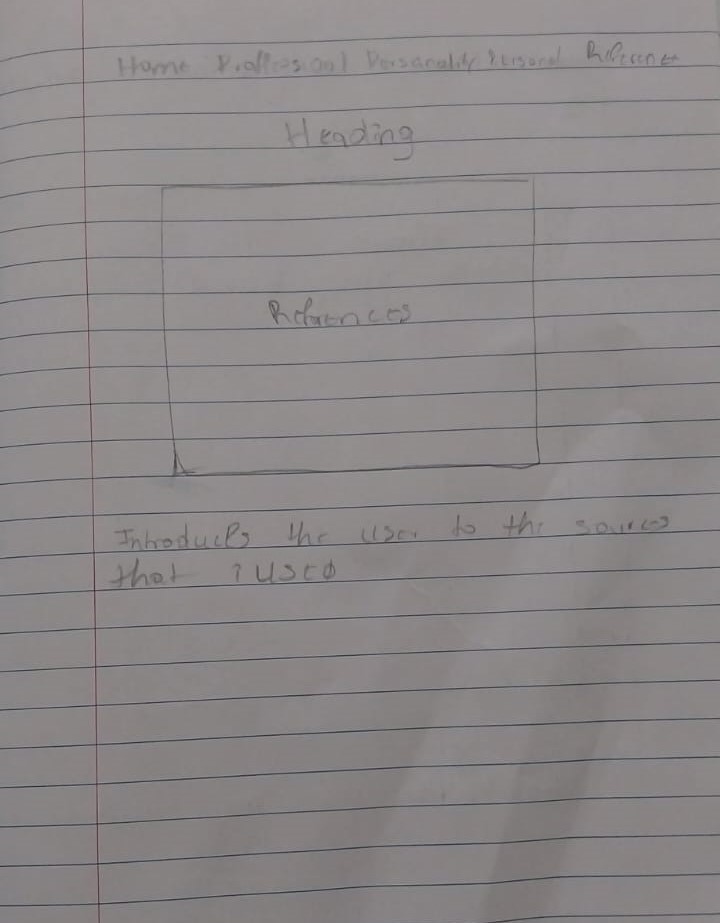 Home Proffesional Personality Personal Reference
Heading
References
Introduces the user to the sources
that i used